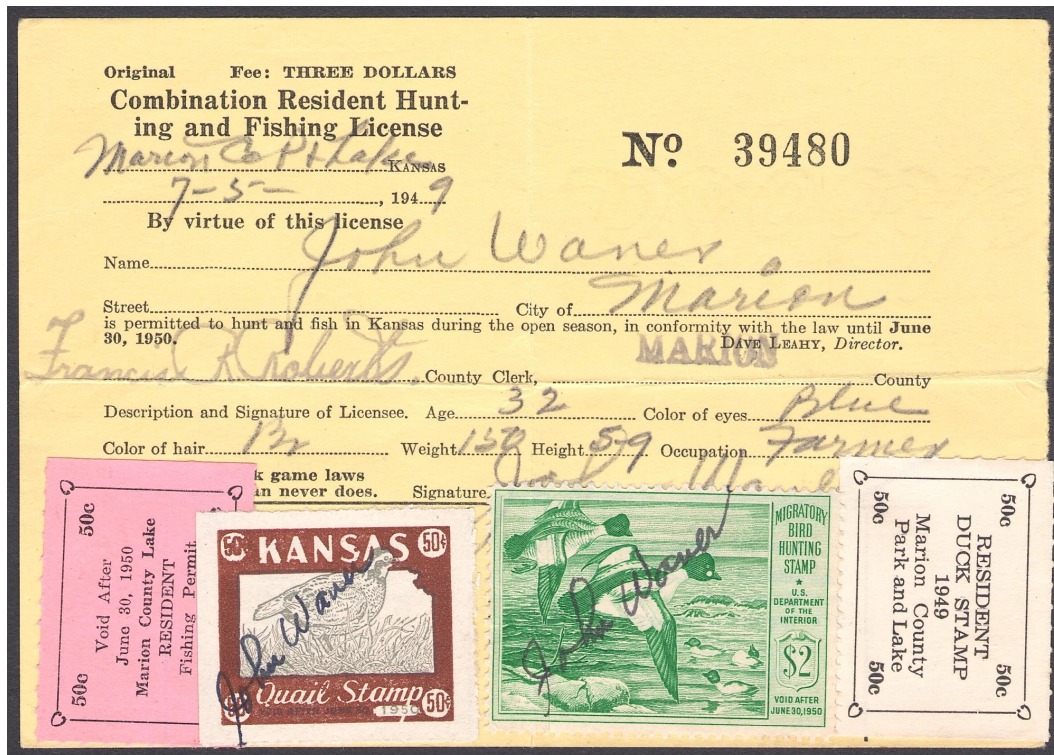 Original Fee: THREE DOLLARS
Combination Resident Hunt-
ing and Fishing License
Marion Co Pk & Lake KANSAS
7-5-, 1949
No 39480
By virtue of this license
Name John Waner
Street City of Marion
is permitted to hunt and fish in Kansas during the open season, in conformity with the law until June
30, 1950. DAVE LEAHY, Director.
Francis R Roberts, County Clerk, MARION County
Description and Signature of Licensee. Age 32 Color of eyes Blue
Color of hair Br Weight 150 Height 5-9 Occupation Farmer
game laws
never does. Signature John Waner
50c 50c
Void After
June 30, 1950
Marion County Lake
RESIDENT
Fishing Permit
50¢ KANSAS 50¢
John Waner
Quail Stamp
VOID AFTER JUNE 30, 1950
50¢ 50¢
MIGRATORY
BIRD
HUNTING
STAMP
U.S.
DEPARTMENT
OF THE
INTERIOR
$2
VOID AFTER
JUNE 30, 1950
John Waner
50c 50c
RESIDENT
DUCK STAMP
1949
Marion County
Park and Lake
50c 50c